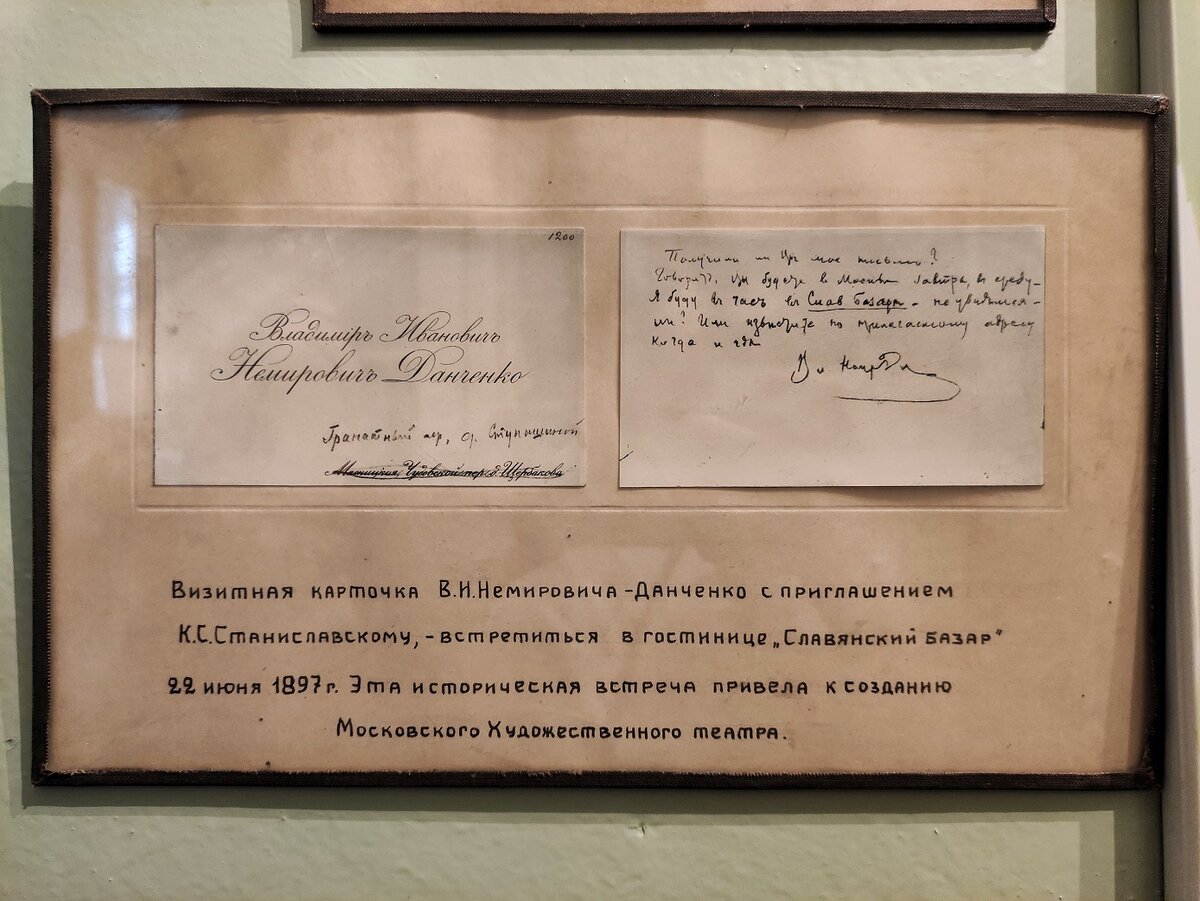 1200
Владиміръ Ивановичъ
Немировичъ-Данченко
Гранатный пер, д. Ступишиной
Чудовской пер. д. Щербакова
Получили ли Вы мое письмо?
Говорятъ, Вы будете в Москвѣ завтра, в среду.
Я буду в часъ въ Слав Базарѣ – не увидимся-
ли? Или извѣстите по прилагаемому адресу
когда и гдѣ
Визитная карточка В.И.Немировича-Данченко с приглашением
К.С.Станиславскому,-встретиться в гостинице „Славянский базар"
22 июня 1897г. Эта историческая встреча привела к созданию
Московского Художественного театра.